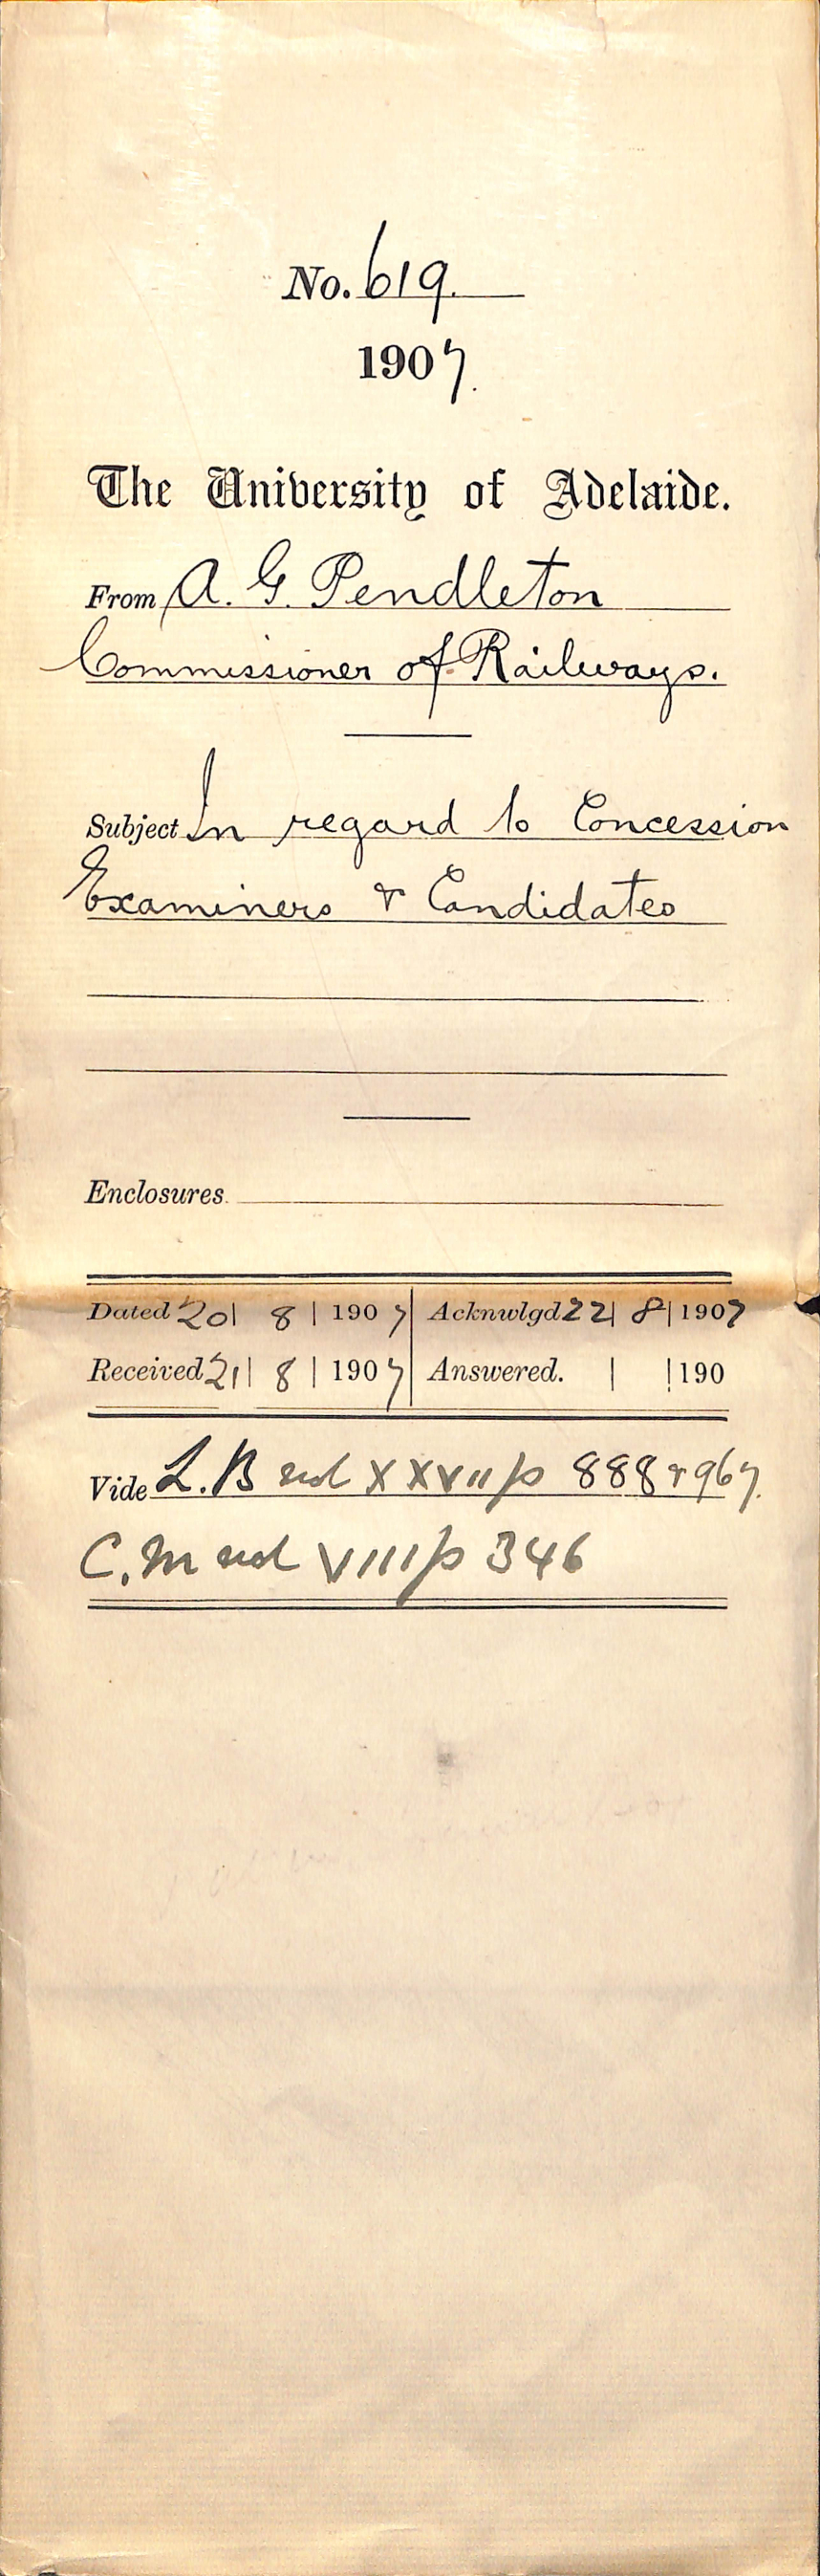 No. 619.
1907.
The University of Adelaide.
From A. G. Pendleton
Commissioner of Railways.
Subject In regard to Concession
Examiners & Candidates
Enclosures.
Dated 20 | 8 | 1907 | Acknwlgd 22 | 8 | 1907
Received 21 | 8 | 1907 | Answered. | | 190
Vide L.B vol XXVII p 888 & 967.
C.M vol VIII p 346